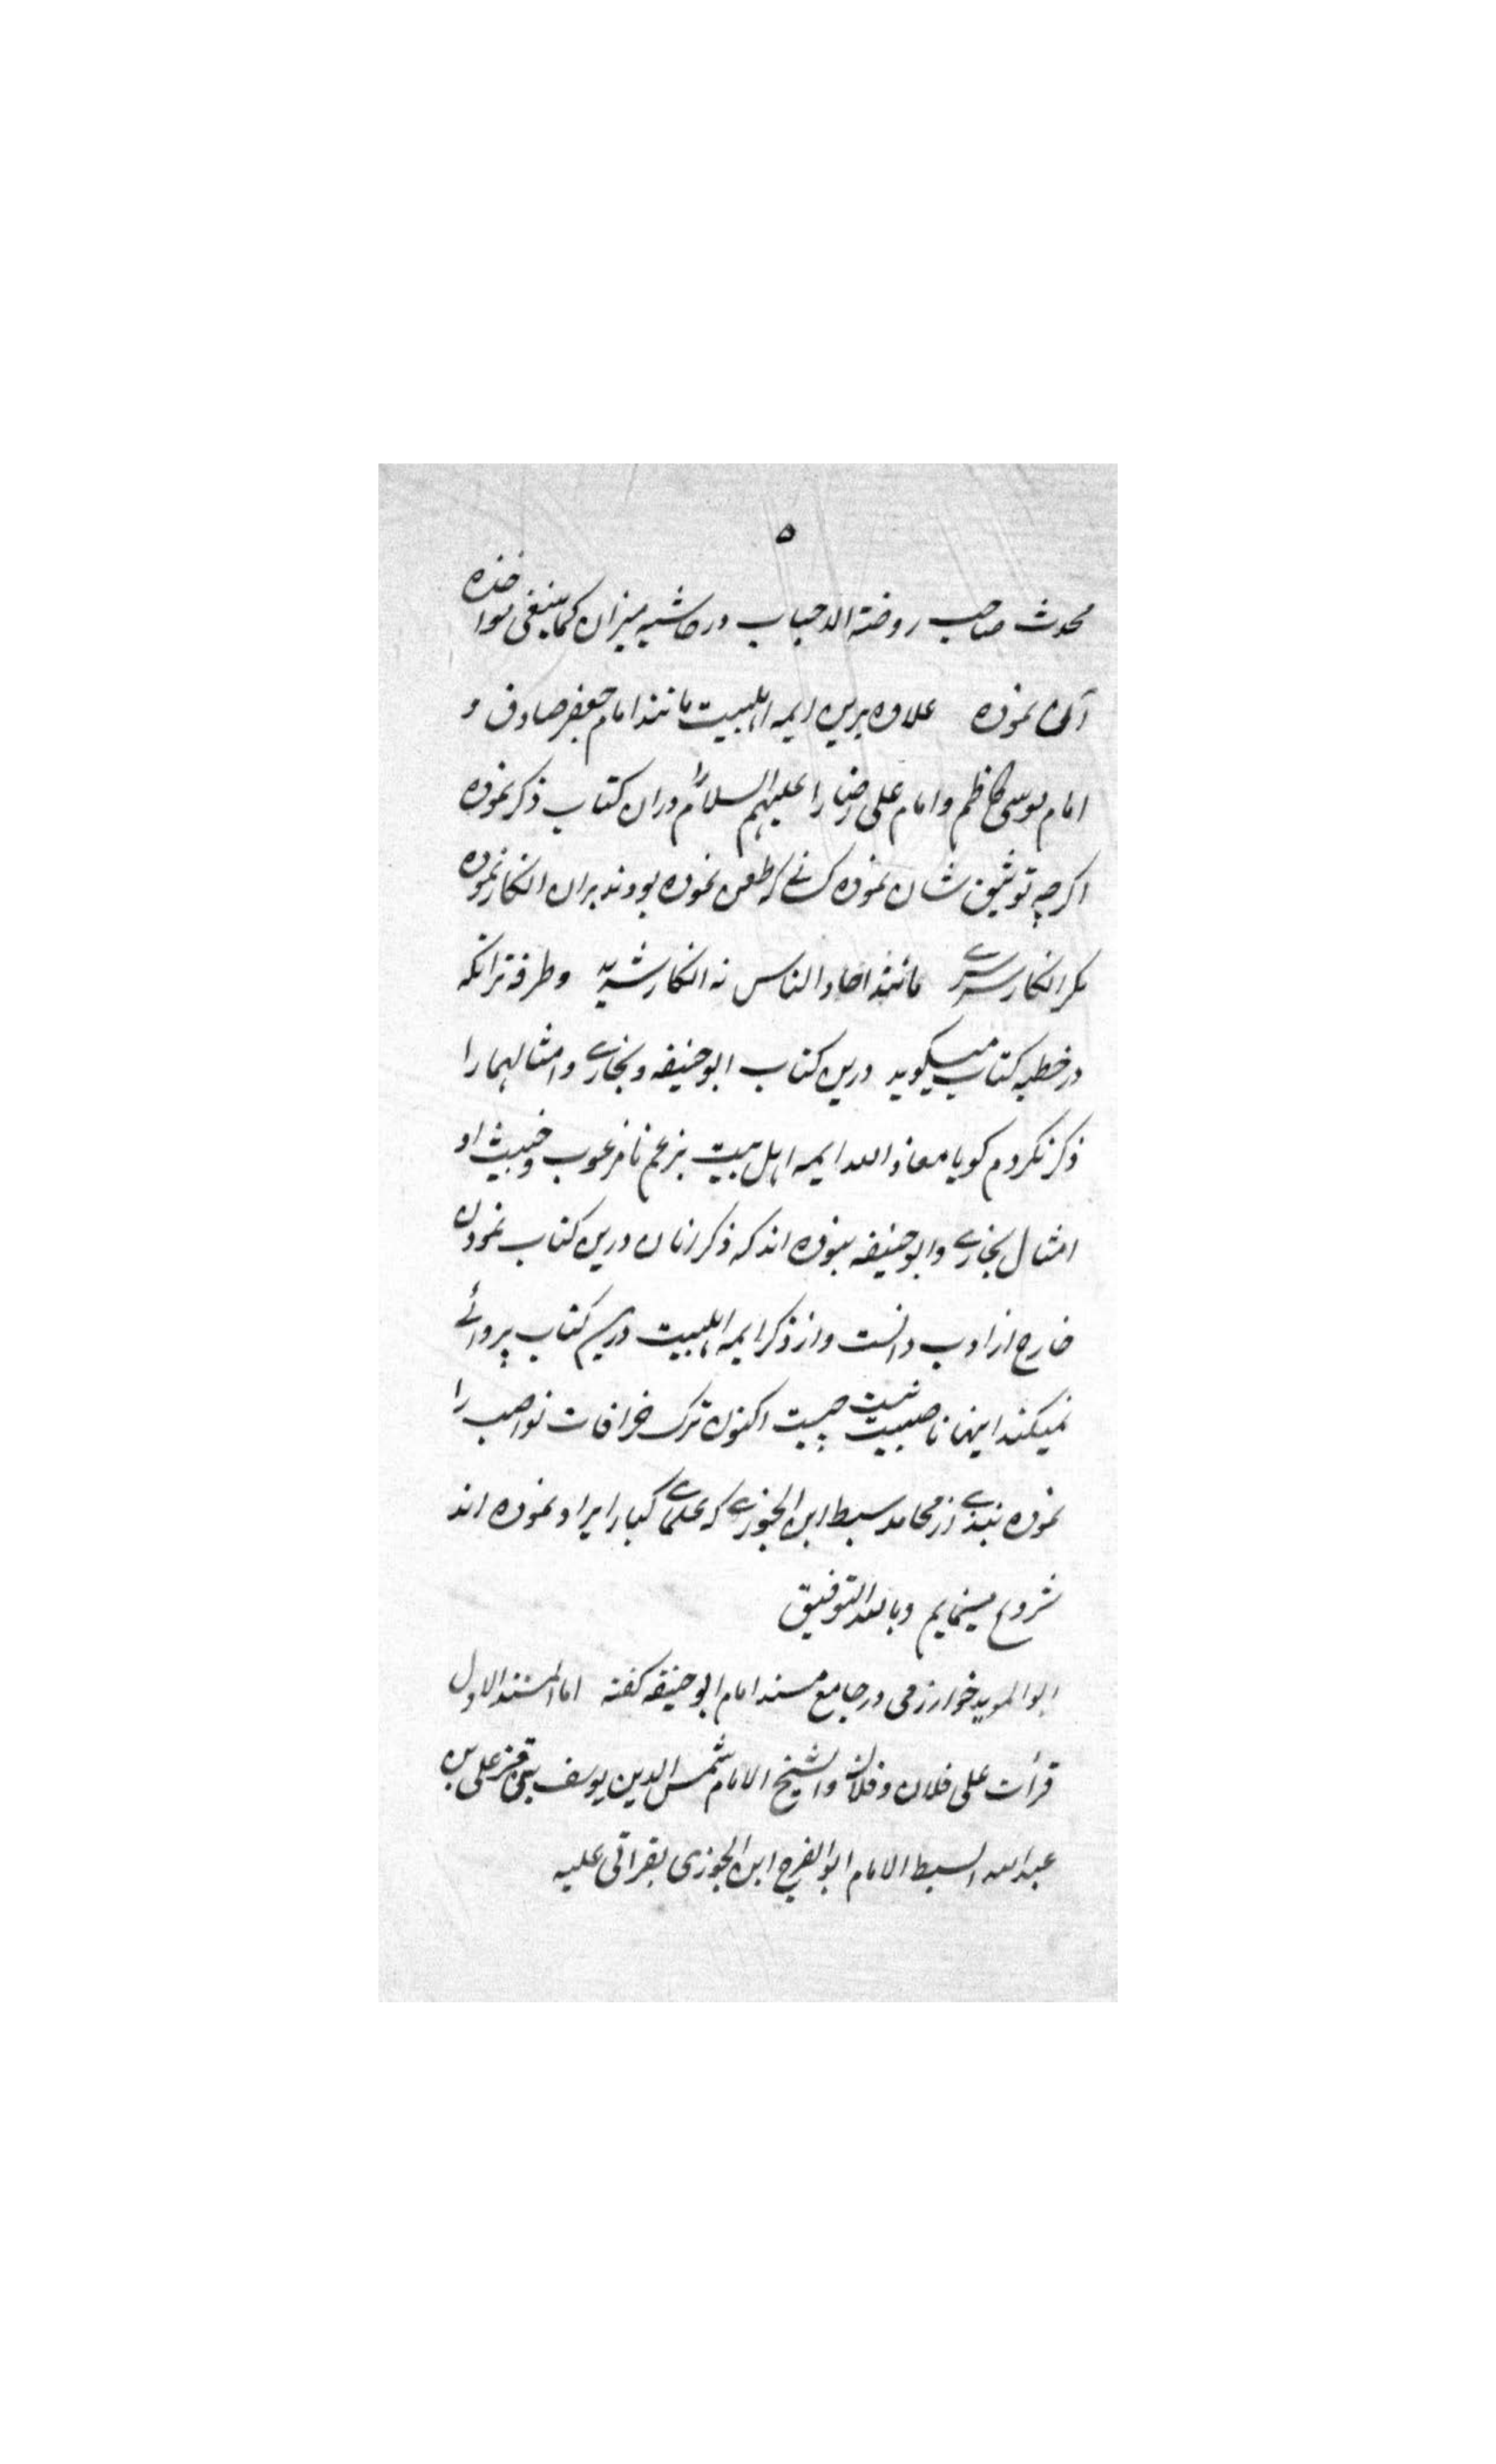 ۵
محدث صاحب روضة الاحباب در حاشیه میزان کما ینبغی مواخذه
نموده علاوه برین ایمه اهلبیت مانند امام جعفر صادق و
امام موسی کاظم و امام علی رضا را علیهم السلام را دران کتاب ذکر نموده
اگرچه توثیق شان نموده کسانے که طعن نموده بودند بران انکار نموده
مگر انکار سرسرے مانند احاد الناس نه انکار شدید و طرفه ترانکه
در خطبه کتاب میگوید درین کتاب ابوحنیفه و بخارے و امثالهما را
ذکر نکردم گویا معاذ الله ایمه اهل بیت بزعم نامرغوب و خبیث او
امثال بخارے و ابوحنیفه نبوده اند که ذکر انان درین کتاب نمودن
خارج از ادب دانست و از ذکر ایمه اهلبیت درین کتاب پروائے
نمیکند اینها ناصبیت نیست چیست اکنون ترک خرافات نواصب را
نموده نبذے از محامد سبط ابن الجوزے که علمائے کبار ایراد نموده اند
شروع مینمایم و بالله التوفیق
ابو الموید خوارزمی در جامع مسند امام ابوحنیفه گفته اما المسند الاول
قرأت علی فلان و فلان و الشیخ الامام شمس الدین یوسف بن قزعلی بن
عبد الله السبط الامام ابو الفرج ابن الجوزی بقراتی علیه